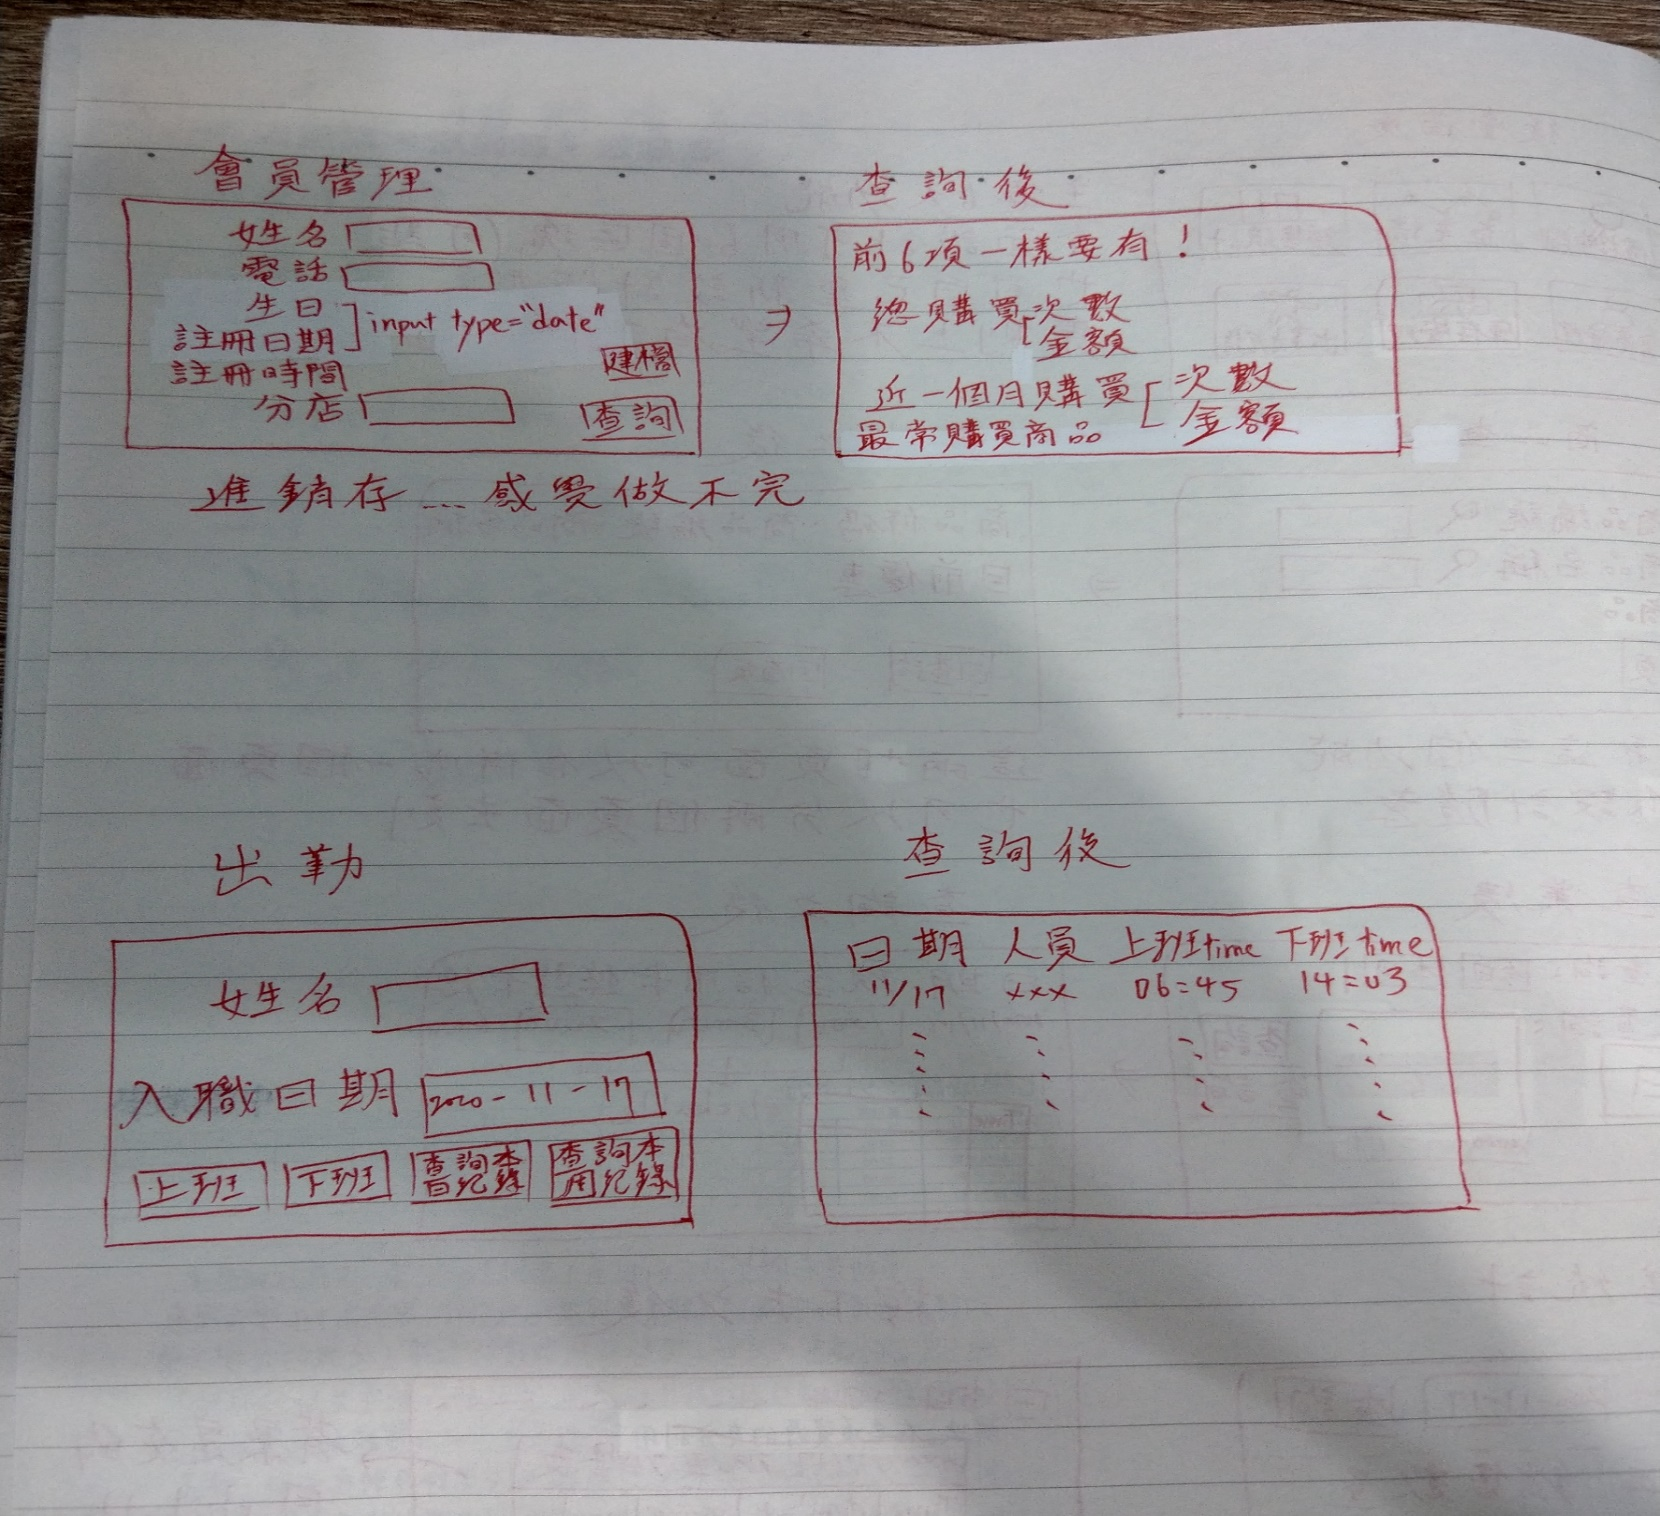 會員管理
姓名
電話
生日
註冊日期
input type="date"
註冊時間
分店
建檔
查詢
查詢後
前6項一樣要有!
總購買次數
金額
近一個月購買 次數
金額
最常購買商品
進銷存...感覺做不完
出勤
姓名
入職日期 2020-11-17
上班 下班 查詢本日紀錄 查詢本周紀錄
查詢後
日期 人員 上班time 下班time
11/17 xxx 06:45 14:03